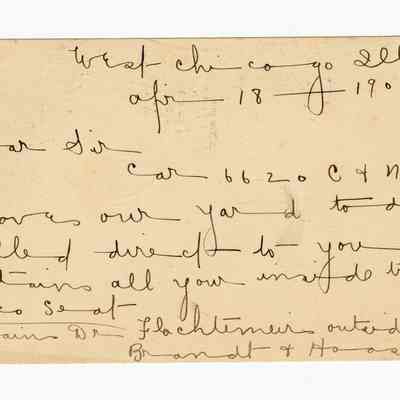 West Chicago Ill
Apr 18 — 190
ar Sir
Car 6620 C & N
oves our yard to d
lled direct to you
tains all your inside t
to seat
ains Dr Flachtemeirs outsid
Brandt & Haas